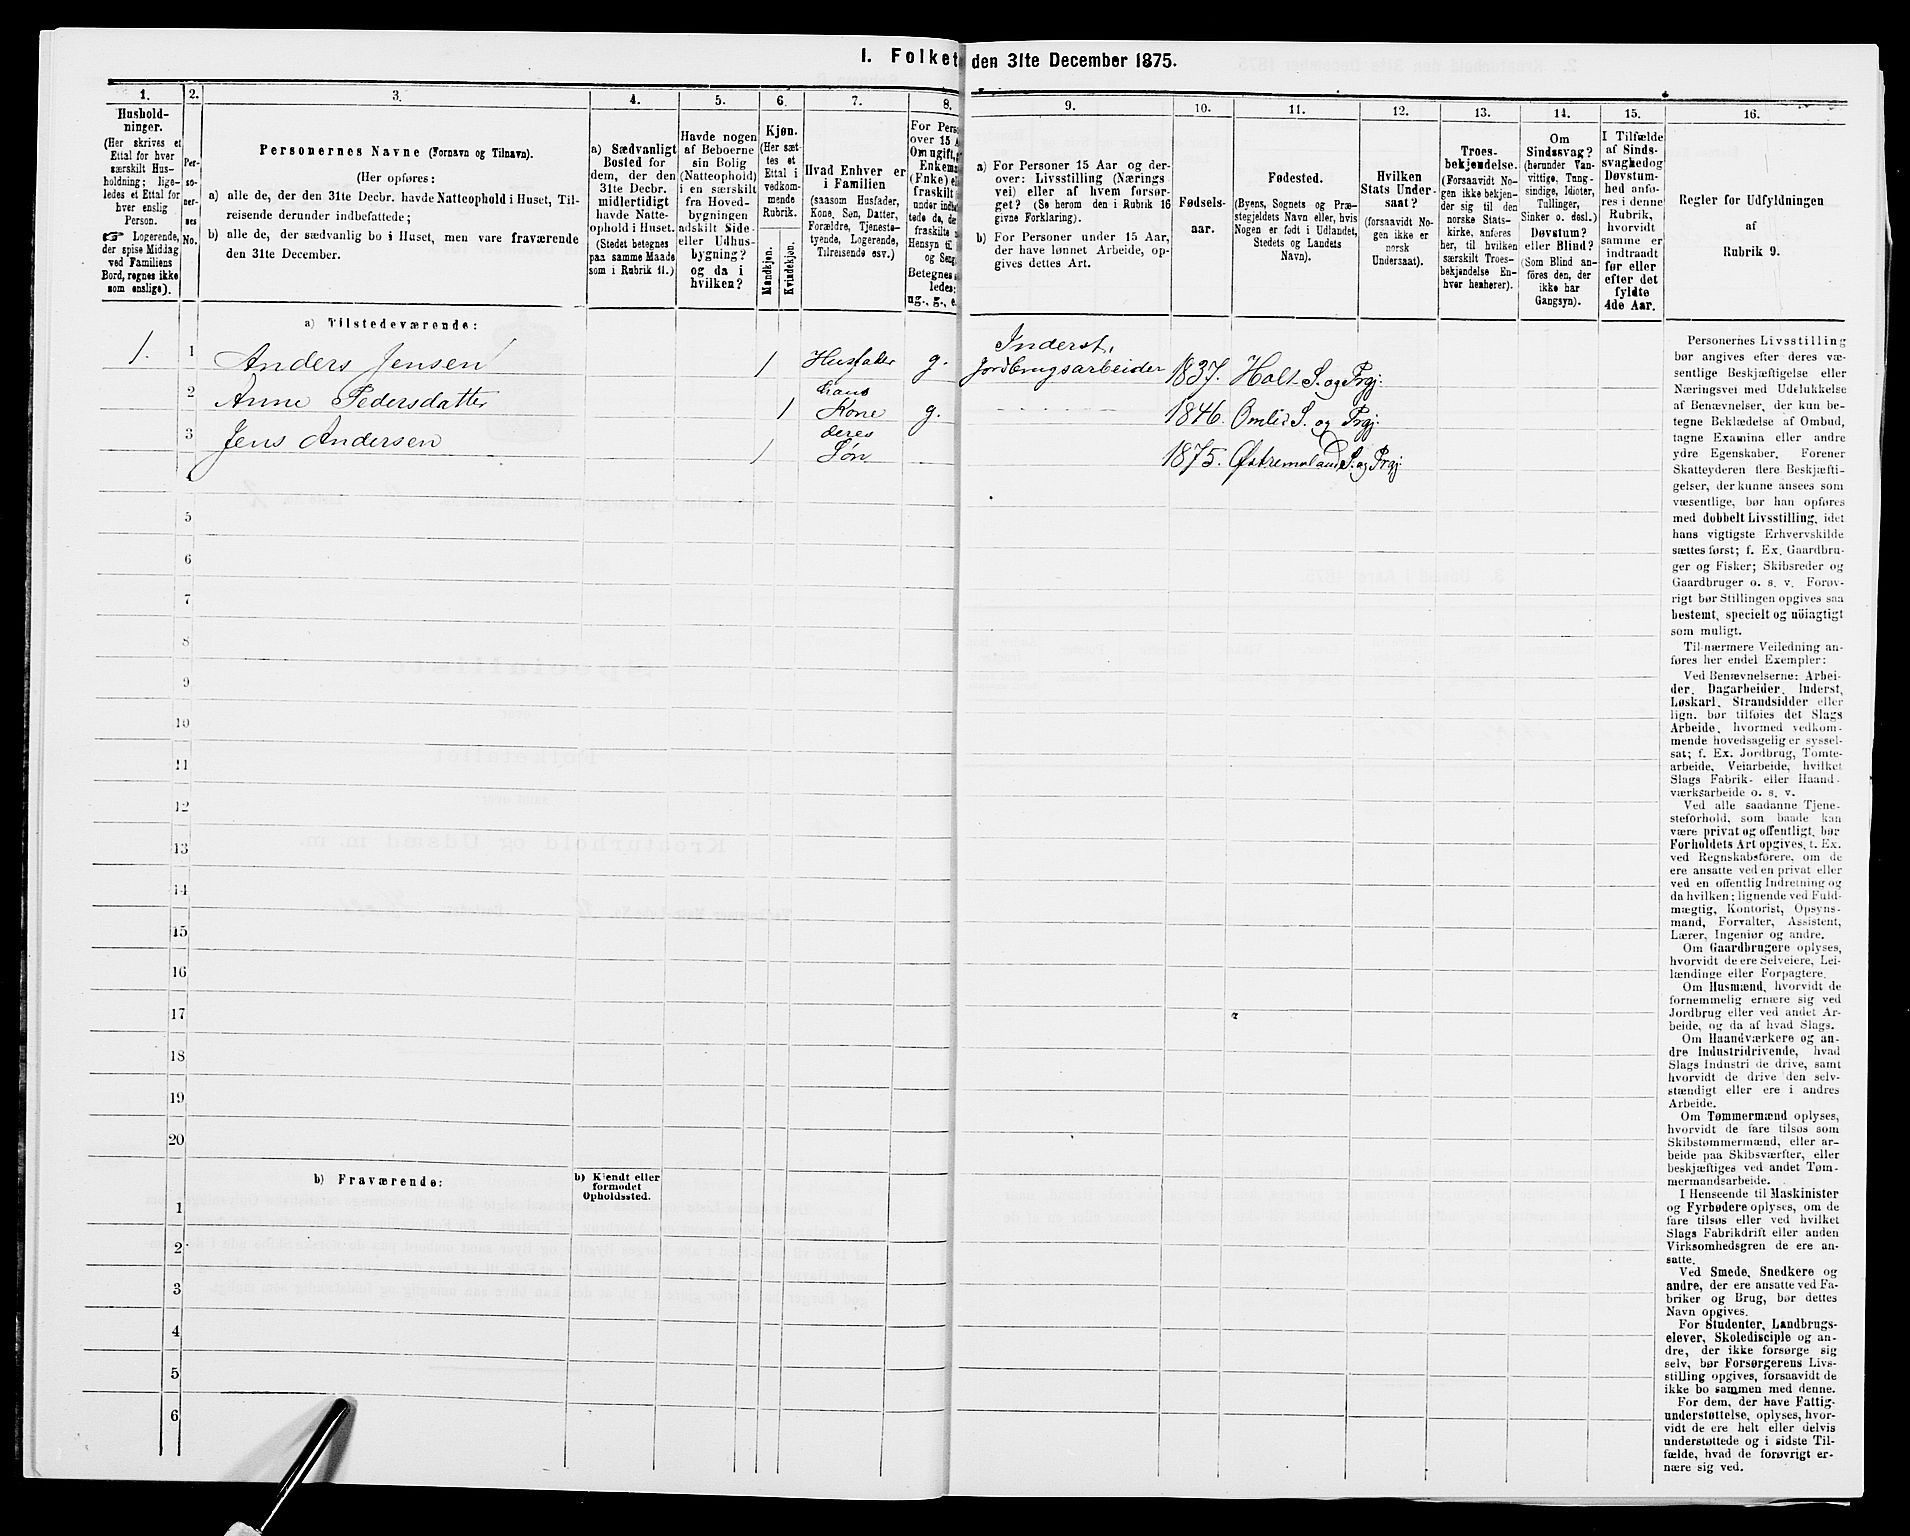 1. Folket den 31te December 1875.
1. 2. 3. 4. 5. 6. 7. 8. 9. 10. 11. 12. 13. 14. 15. 16.
Hushold-
ninger.
(Her skrives et
Ettal for hver
særskilt Hus-
holdning; lige-
ledes et Ettal for
hver enslig
Person.
☞ Logerende,
der spise Middag
ved Familiens
Bord, regnes ikke
som enslige).
Per-
so-
ner-
nes
No.
Personernes Navne (Fornavn og Tilnavn).
(Her opføres:
a) alle de, der den 31te Decbr. havde Natteophold i Huset, Til-
reisende derunder indbefattede;
b) alle de, der sædvanlig bo i Huset, men vare fraværende
den 31te December.
a) Sædvanligt
Bosted for
dem, der den
31te Decbr.
midlertidigt
havde Natte-
ophold i Huset.
(Stedet betegnes
paa samme Maade
som i Rubrik 11.)
Havde nogen
af Beboerne
sin Bolig
(Natteophold)
i en særskilt
fra Hoved-
bygningen
adskilt Side-
eller Udhus-
bygning?
og da i
hvilken?
Kjøn.
(Her sæt-
tes et
Ettal i
vedkom-
mende
Rubrik.
Mandkjøn.
Kvindekjøn.
Hvad Enhver er
i Familien
(saasom Husfader,
Kone, Søn, Datter,
Forældre, Tjeneste-
tyende, Logerende,
Tilreisende osv.).
For Pers
over 15 A
Om ugift, g
Enkem
(Enke) el
fraskilt
under indb
tede de, de
fraskilte
Hensyn til
og Seng
Betegnes
ledes:
ug., g., e.
a) For Personer 15 Aar og der-
over: Livsstilling (Nærings
vei) eller af hvem forsør-
get? (Se herom den i Rubrik 16
givne Forklaring).
b) For Personer under 15 Aar,
der have lønnet Arbeide, op-
gives dettes Art.
Fødsels-
aar.
Fødested.
(Byens, Sognets og Præ-
stegjeldets Navn eller, hvis
Nogen er født i Udlandet,
Stedets og Landets
Navn).
Hvilken
Stats Under-
saat?
(forsaavidt No-
gen ikke er
norsk
Undersaat).
Troes-
bekjendelse.
(Forsaavidt No-
gen ikke bekjen-
der sig til den
norske Stats-
kirke, anføres
her, til hvilken
særskilt Troes-
bekjendelse En-
hver henhører).
Om
Sindssvag?
(herunder Van-
vittige, Tung-
sindige, Idioter,
Tullinger,
Sinker o. desl.)
Døvstum?
eller Blind?
(Som Blind an-
føres den, der
ikke har
Gangsyn).
I Tilfælde
af Sinds-
svaghed og
Døvstum-
hed anfø-
res i denne
Rubrik,
hvorvidt
samme er
indtraadt
før eller
efter det
fyldte
4de Aar.
Regler for Udfyldningen
af
Rubrik 9.
a) Tilstedeværende:
1. 1 Anders Jensen 1 Husfader g. Inderst, Jordbrugsarbeider 1837. Holt S. og Prgj:
2 Anne Pedersdatter 1 hans Kone g. 1846. Omlid S. og Prgj.
3 Jens Andersen 1 deres Søn 1875. Østremoland S. og Prgj.
4
5
6
7
8
9
10
11
12
13
14
15
16
17
18
19
20
b) Fraværende:
b) Kjendt eller
formodet
Opholdssted.
1
2
3
4
5
6
Personernes Livsstilling
bør angives efter deres væ-
sentlige Beskjæftigelse eller
Næringsvei med Udelukkelse
af Benævnelser, der kun be-
tegne Beklædelse af Ombud,
tagne Examina eller andre
ydre Egenskaber. Forener
Skatteyderen flere Beskjæfti-
gelser, der kunne ansees som
væsentlige, bør han opføres
med dobbelt Livsstilling, idet
hans vigtigste Erhvervskilde
sættes først; f. Ex. Gaardbru-
ger og Fisker; Skibsreder og
Gaardbruger o. s. v. Forøv-
rigt bør Stillingen opgives saa
bestemt, specielt og nöiagtigt
som muligt.
Til nærmere Veiledning an-
føres her endel Exempler:
Ved Benævnelserne: Arbei-
der, Dagarbeider, Inderst,
Løskarl, Strandsidder eller
lign. bør tilføies det Slags
Arbeide, hvormed vedkom-
mende hovedsagelig er syssel-
sat; f. Ex. Jordbrug, Tomte-
arbeide, Veiarbeide, hvilket
Slags Fabrik- eller Haand-
værksarbeide o. s. v.
Ved alle saadanne Tjene-
steforhold, som baade kan
være privat og offentligt, bør
Forholdets Art opgives, f. Ex.
ved Regnskabsførere, om de
ere ansatte ved en privat eller
ved en offentlig Indretning og
da hvilken; lignende ved Fuld-
mægtig, Kontorist, Opsyns-
mand, Forvalter, Assistent,
Lærer, Ingeniør og andre.
Om Gaardbrugere oplyses,
hvorvidt de ere Selveiere, Lei-
lændinge eller Forpagtere.
Om Husmænd, hvorvidt de
fornemmelig ernære sig ved
Jordbrug eller ved andet Ar-
beide, og da af hvad Slags.
Om Haandværkere og an-
dre Industridrivende, hvad
Slags Industri de drive, samt
hvorvidt de drive den selv-
stændigt eller ere i andres
Arbeide.
Om Tømmermænd oplyses,
hvorvidt de fare tilsøs som
Skibstømmermænd, eller ar-
beide paa Skibsværfter, eller
beskjæftiges ved andet Tøm-
mermandsarbeide.
I Henseende til Maskinister
og Fyrbødere oplyses, om de
fare tilsøs eller ved hvilket
Slags Fabrikdrift eller anden
Virksomhedsgren de ere an-
satte.
Ved Smede, Snedkere og
andre, der ere ansatte ved Fa-
briker og Brug, bør dettes
Navn opgives.
For Studenter, Landbrugs-
elever, Skoledisciple og an-
dre, der ikke forsørge sig
selv, bør Forsørgerens Livs-
stilling opgives, forsaavidt de
ikke bo sammen med denne.
For dem, der have Fattig-
understøttelse, oplyses, hvor-
vidt de ere helt eller delvis
understøttede og i sidste Til-
fælde, hvad de forøvrigt er-
nære sig ved.